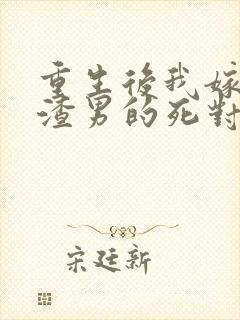 重生後我嫁
渣男的死對
宋廷新